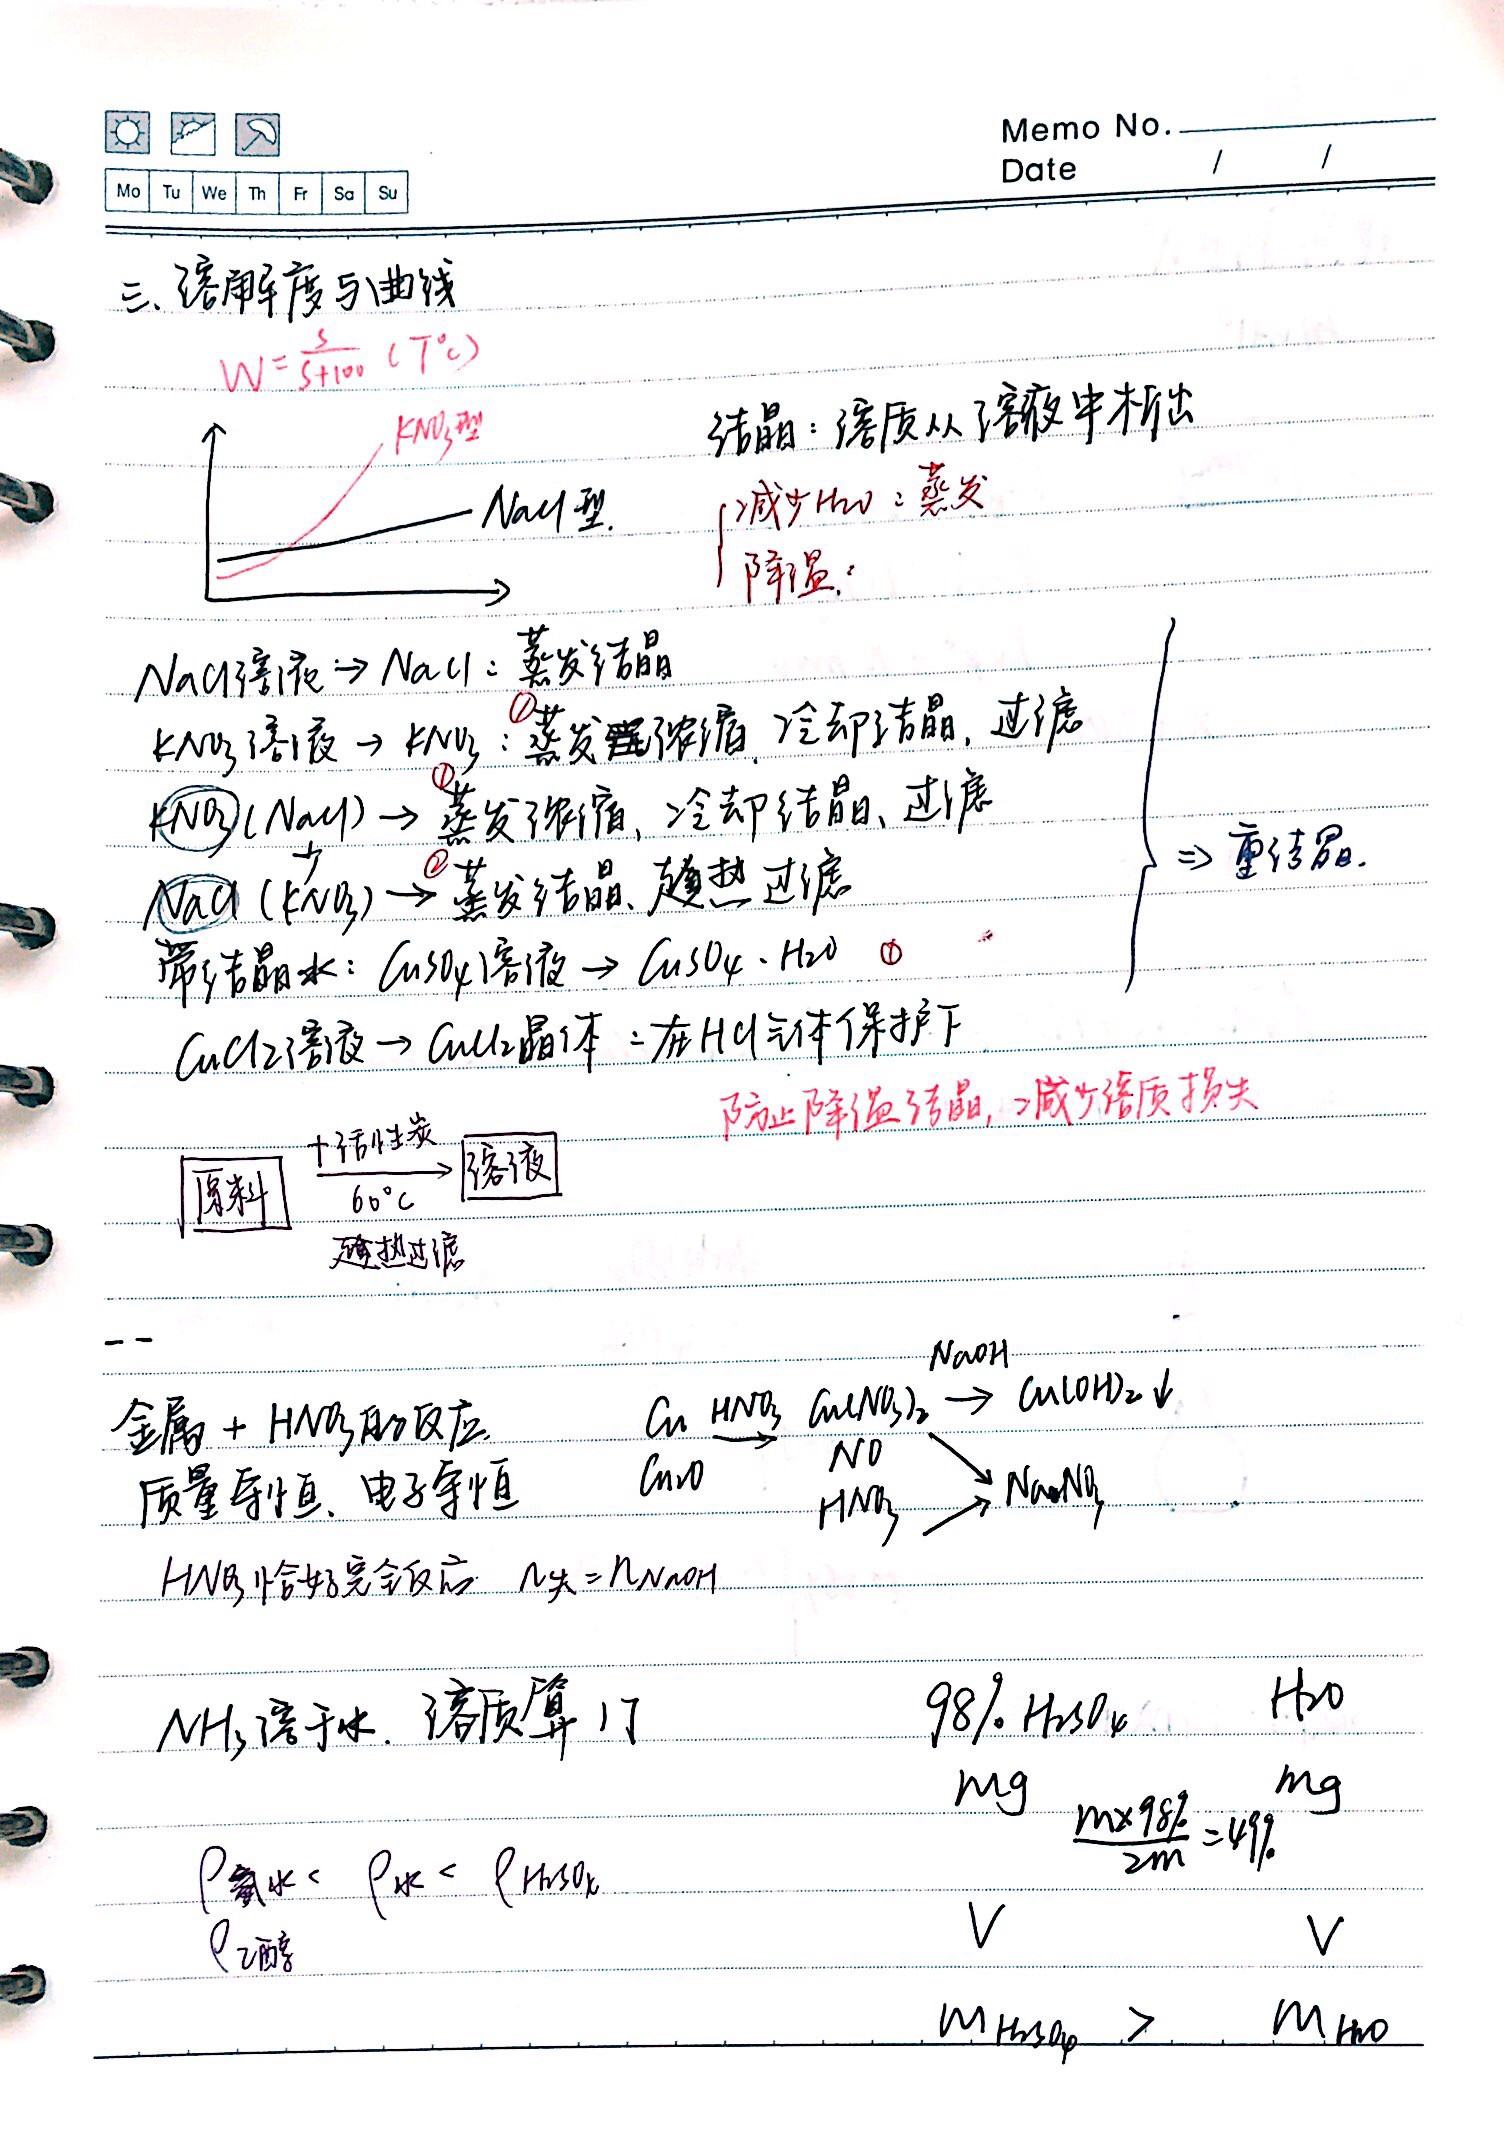 Memo No.
Date / /
Mo Tu We Th Fr Sa Su
三、溶解度与曲线
W = S/(S+100) (T℃)
KNO₃型
NaCl型.
结晶：溶质从溶液中析出
减少H₂O：蒸发
降温：
NaCl溶液 → NaCl：蒸发结晶
KNO₃溶液 → KNO₃：①蒸发浓缩、冷却结晶、过滤
KNO₃(NaCl) → ①蒸发浓缩、冷却结晶、过滤
NaCl(KNO₃) → ②蒸发结晶、趁热过滤
⇒ 重结晶.
带结晶水：CuSO₄溶液 → CuSO₄·H₂O ①
CuCl₂溶液 → CuCl₂晶体：在HCl气体保护下
防止降温结晶，减少溶质损失
原料 +活性炭 → 溶液
60℃
趁热过滤
金属 + HNO₃的反应
质量守恒、电子守恒
NaOH
Cu HNO₃ → Cu(NO₃)₂ → Cu(OH)₂↓
Cu₂O NO
HNO₃ NaNO₃
HNO₃恰好完全反应 n失 = nNaOH
NH₃溶于水. 溶质算
98% H₂SO₄ H₂O
mg mg
m×98%/2m = 49%
ρ氨水 < ρ水 < ρH₂SO₄
ρ乙醇
V V
mH₂SO₄ > mH₂O